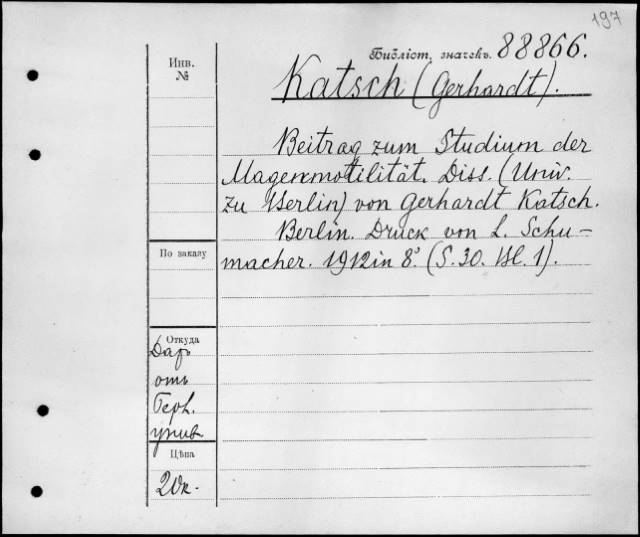 197
Библіот. значекъ. 88866.
Инв.
№
Katsch (Gerhardt).
Beitrag zum Studium der
Magenmotilität. Diss. (Univ.
zu Berlin) von Gerhardt Katsch.
Berlin. Druck von L. Schu-
macher. 1912 in 8º. (S. 30. Bl. 1).
По заказу
Откуда
Даръ
отъ
Берл.
унив.
Цѣна
20к.